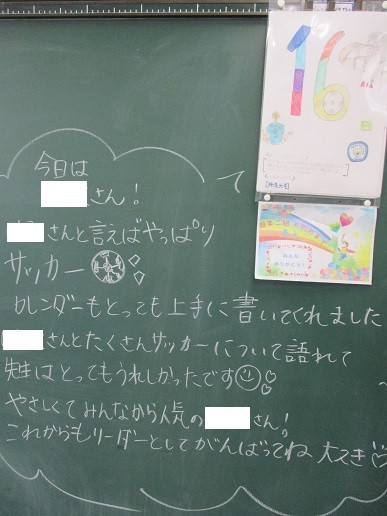 16
今日は
さん!
さんと言えばやっぱり
サッカー
カレンダーもとっても上手に書いてくれました
さんとたくさんサッカーについて語れて
先生はとってもうれしかったです
やさしくてみんなから人気の さん!
これからもリーダーとしてがんばってね 大スキ